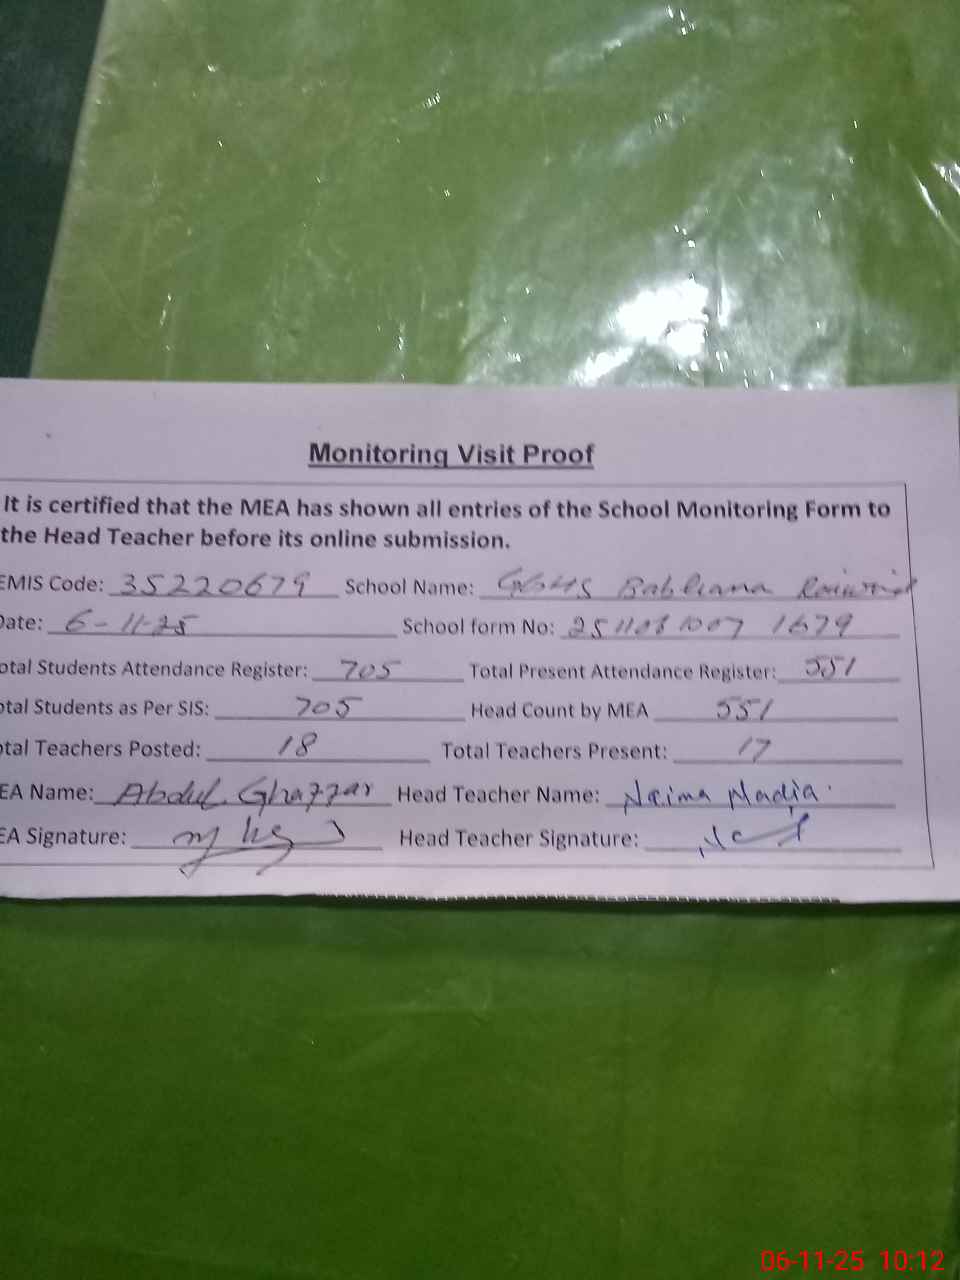 Monitoring Visit Proof
It is certified that the MEA has shown all entries of the School Monitoring Form to
the Head Teacher before its online submission.
EMIS Code: 35220679 School Name: GGHS Babliana Raiwind
Date: 6-11-25 School form No: 1679
otal Students Attendance Register: 705 Total Present Attendance Register: 551
otal Students as Per SIS: 705 Head Count by MEA 551
otal Teachers Posted: 18 Total Teachers Present: 17
EA Name: Abdul Ghaffar Head Teacher Name: Naima Nadia.
EA Signature: Head Teacher Signature:
06-11-25 10:12